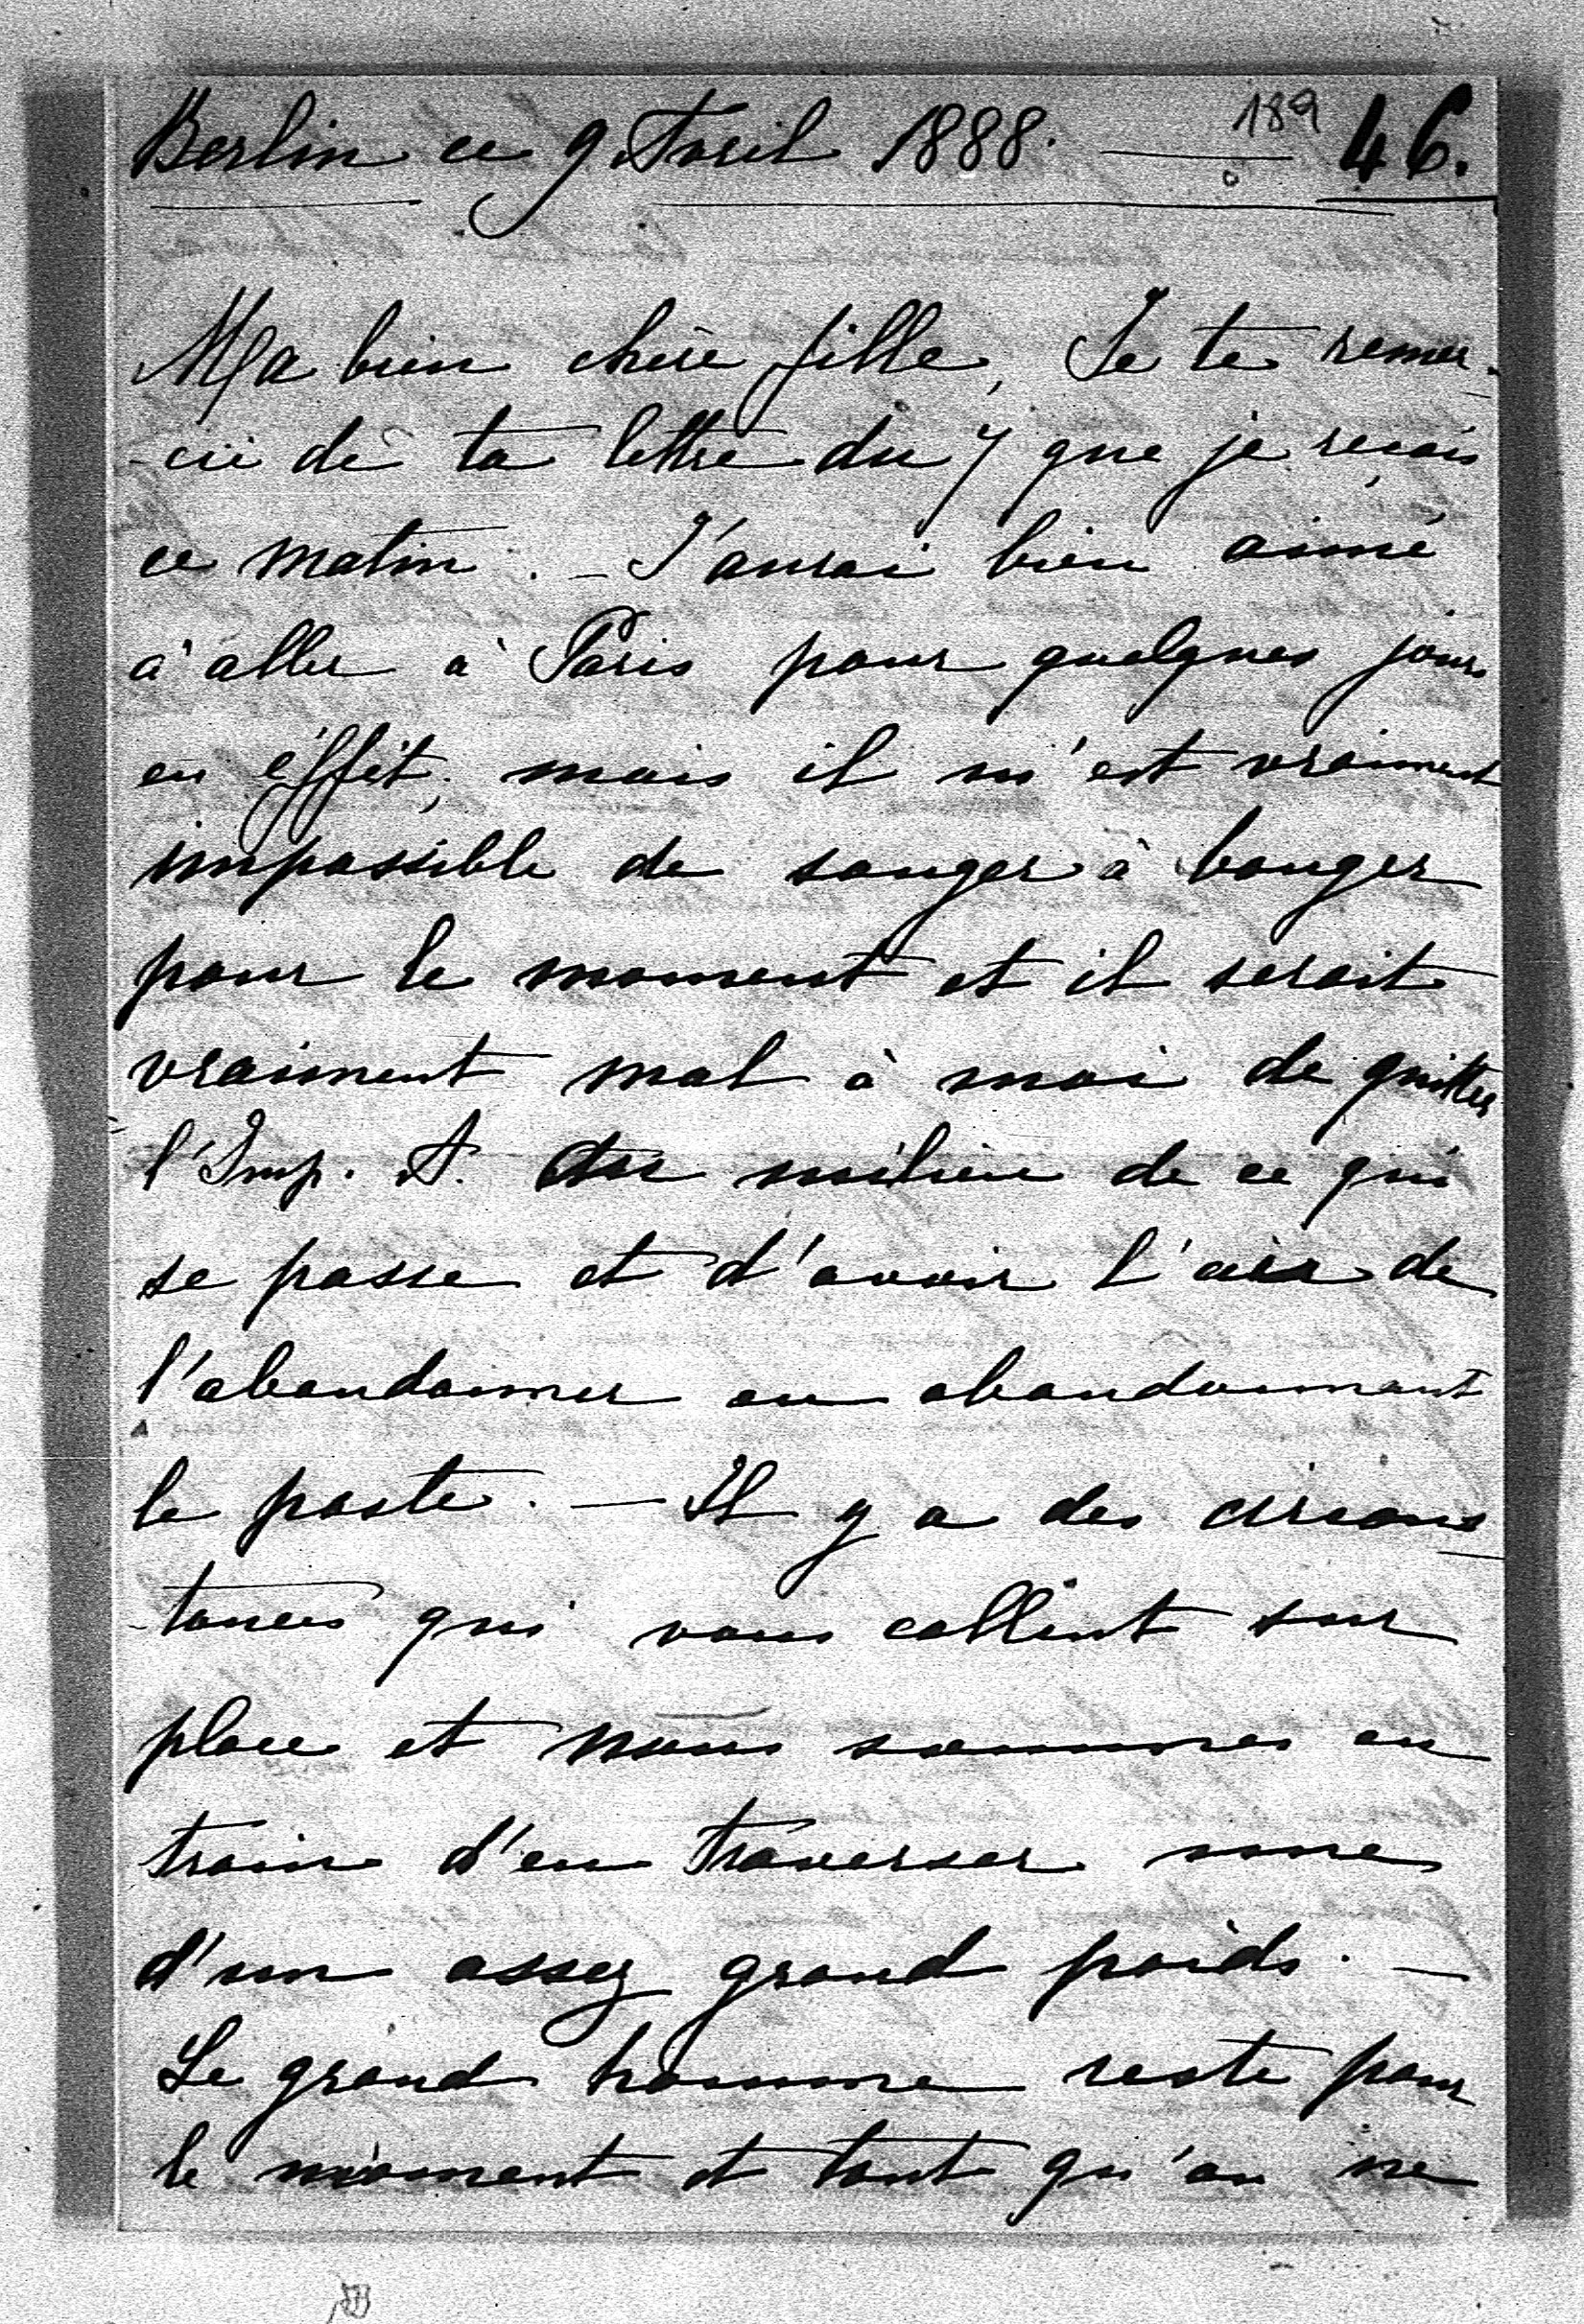 Berlin ce 9 Avril 1888. 189 46.
Ma bien chère fille, Je te remer-
-cie de ta lettre du 7 que je reçois
ce matin. — J'aurai bien aimé
à aller à Paris pour quelques jours
en éffet, mais il m'est vraiment
impossible de songer à bouger
pour le moment et il serait
vraiment mal à moi de quitter
l'Imp. A. au milieu de ce qui
se passe et d'avoir l'air de
l'abandonner en abandonnant
le poste. — Il y a des circons-
-tances qui vous collent sur
place et nous sommes en
train d'en traverser une
d'un assez grand poids. —
Le grand homme reste pour
le moment et tant qu'on ne